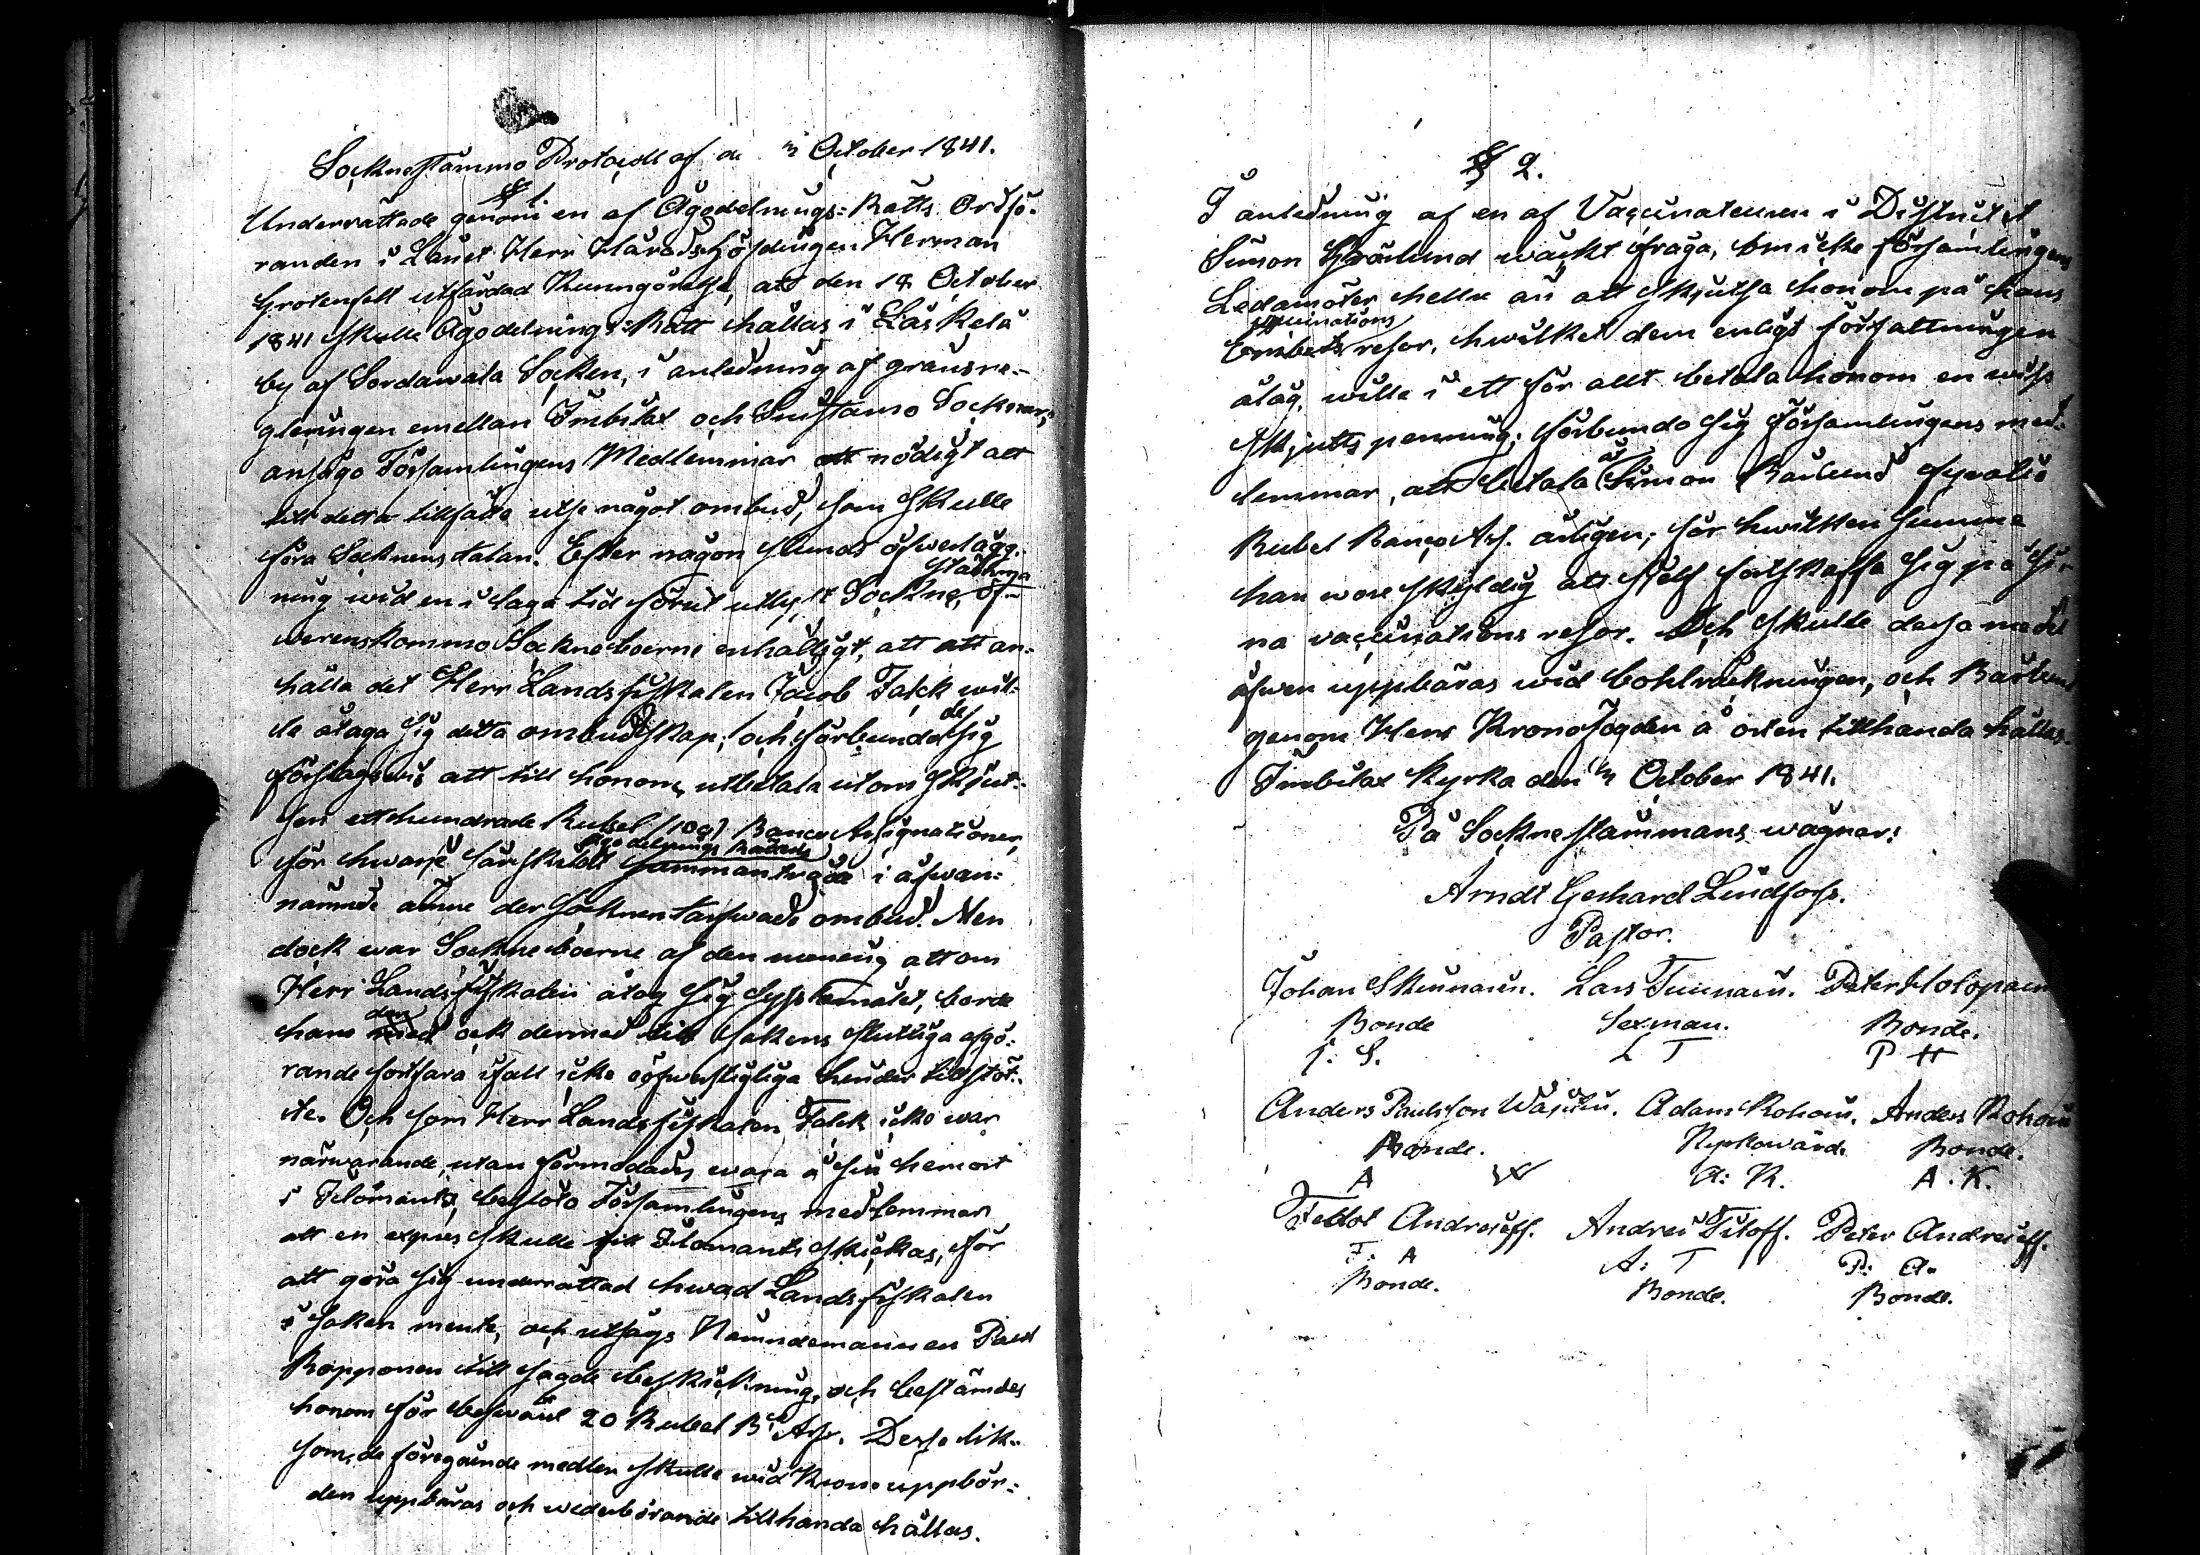 Sockne stämmo Protocoll af de October 1841.
§ 1
Underrättade genom en af Ägodelnings=Rätts Ordfö-
randen i Länet Herr Häradshöfdingen Herman
Grotenfelt utfärdad Kunngörelse, att den 18 October
1841 skulle Ägodelnings=Rätt hållas i Läskelä
by af Sordawala Socken, i anledning af gränsre-
gleringen emellan Imbilax och Suistamo Socknar,
ansågo Församlingens Medlemmar nödigt att
till detta tillfälle utse något ombud, som skulle
föra Socknens talan. Efter någon stunds öfverlägg-
ning wid en i laga tid förut utlyst Sockne stämma öf-
werenskommo Sockneboerne enhälligt, att att an-
hålla det Herr Landsfiskalen Jacob Falck wil-
le åtaga sig detta ombudskap; och förbundo de sig
förslagswis att till honom utbetala utom skjut-
sen etthundrade Rubel (100) Banco Assignationer,
för hwarje särskildt Ägodelnings Rättens sammanträde i ofwan-
nämnde ämne der socknen tarfwade ombud. Men
dock war Sockneboerne af den mening att om
Herr Landsfiskalen åtog sig sysslomålet, borde
han den med ock dermed till sakens slutliga afgö-
rande fortfara ifall icke oöfwerstigliga hinder tillstöt-
te. Och som Herr Landsfiskalen Falck icke war
närwarande, utan förmodades wara å sin hemort
i Ilomants, beslöto Församlingens medlemmar
att en expres skulle till Ilomants skickas, för
att göra sig underrättad hwad Landsfiskalen
i saken mente, och utsågs Nämndemannen Paul
Ropponen till sagde beskickning, och bestämdes
honom för beswäret 20 Rubel Bco Ass. Desse lik-
som de föregående medlen skulle wid Krono uppbör-
den uppbäras och wederbörande tillhanda hållas.
§ 2.
I anledning af en af Vaccinateuren i Districtet
Simon Bäcklund wäckt fråga, om icke församlingens
Ledamöter hellre än att skjutsa honom på hans
vaccinations
Embets resor, hwilket dem enligt författningen
ålåg, wille i ett för allt betala honom en wiss
skjutts penning; förbundo sig Församlingens med-
lemmar, att betala å Simon Bäcklund fyratio
Rubel Banco Ass. årligen; för hwilken summa
han wore skyldig att sjelf fortskaffa sig på si-
na vaccinations resor. Och skulle dessa medel
äfwen uppbäras wid bohlräkningen, och Bäcklund
genom Herr Kronofogden å orten tillhanda hållas.
Imbilax Kyrka den October 1841.
På Sockne stämmans wägnar:
Arndt Gerhard Lindforss.
Pastor.
Johan Skinnarin. Lars Tuunain. Peter Holopain
Bonde Sexman. Bonde.
J. S. L T P H
Anders Paulsson Wäjsäin. Adam Kohoin. Anders Kohoin
Bonde. Kyrkowärd. Bonde.
A W A: K. A. K.
Feddot Andrejeff. Andrei Titoff. Peter Andrejeff.
F. A A: T P: A.
Bonde. Bonde. Bonde.